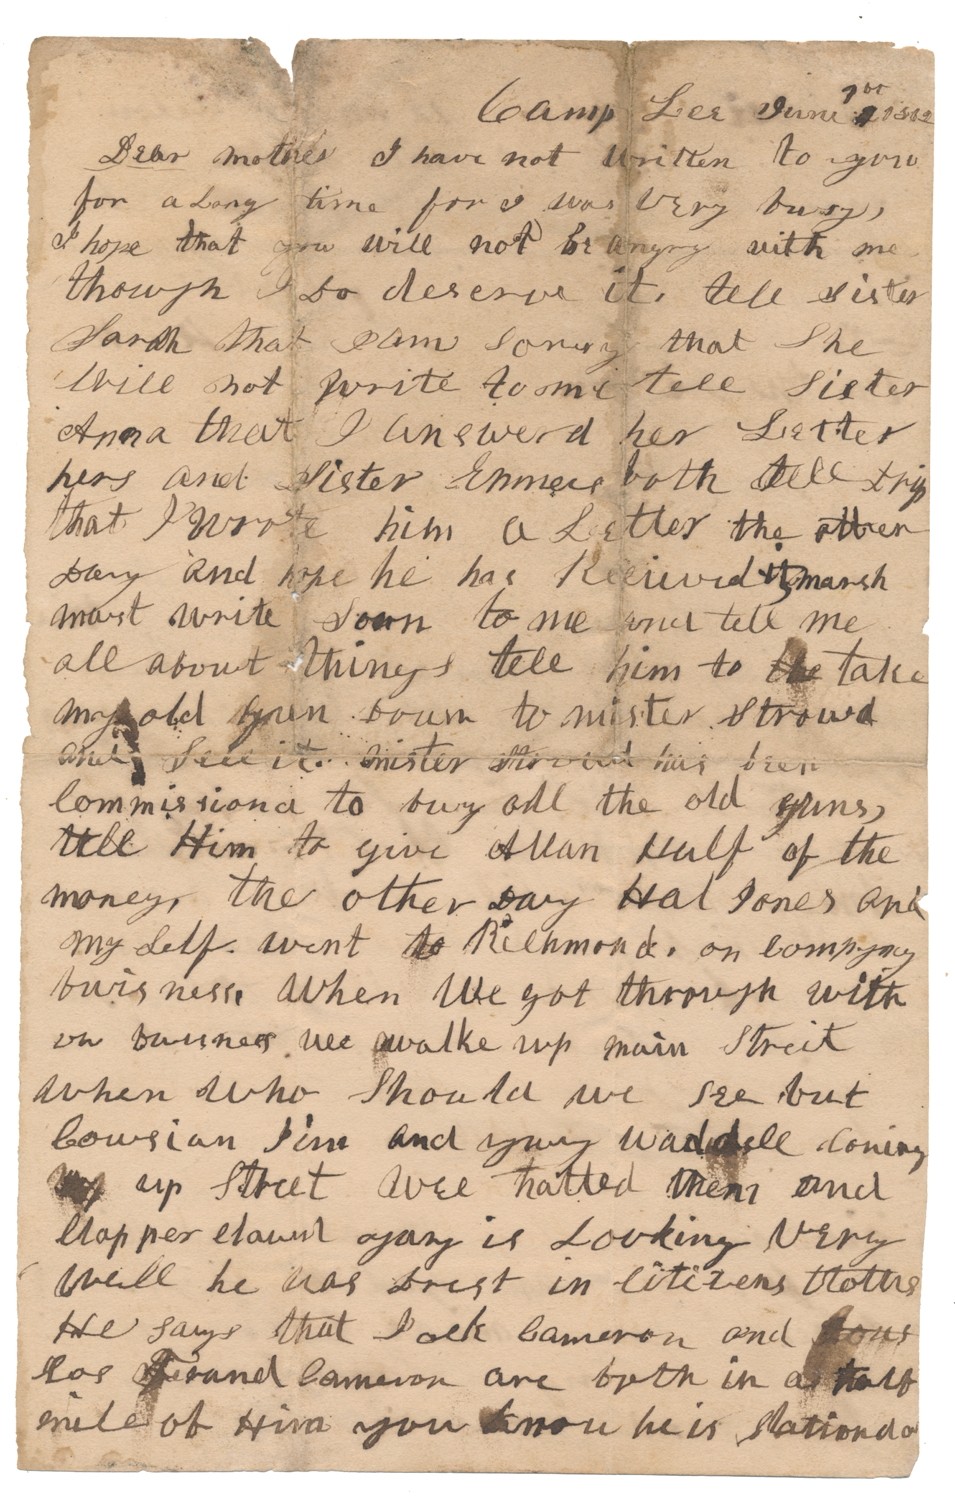 Camp Lee June 1st 1862
Dear mother I have not written to you
for a Long time for I was very busy,
I hope that you will not be angry with me
though I Do deserve it. tell sister
Sarah that I am Sorry that She
Will not write to me tell Sister
Anna that I answerd her Letter
hers and Sister Emmas both tell trip
that I Wrote him a Letter the other
Day and hope he has Recieived it marsh
must write Soon to me and tell me
all about things tell him to the take
my old gun down to mister Strowd
and Sell it. mister Strowd has been
Commissiond to buy all the old guns,
tell Him to give Allan Half of the
money, the other Day Hal Jones and
my Self. went to Richmond. on Company
buisness, When We got through with
our buisness we walke up main Street
When Who Should we see but
Cowsian Jim and gary Waddell Coming
up Street Wee halted them and
Clapper clawd gary is Looking Very
Well he was Drest in Citizens Cloths
He Says that Jack Cameron and
Ferand Cameron are both in a half
mile of Him you know he is Stationd a